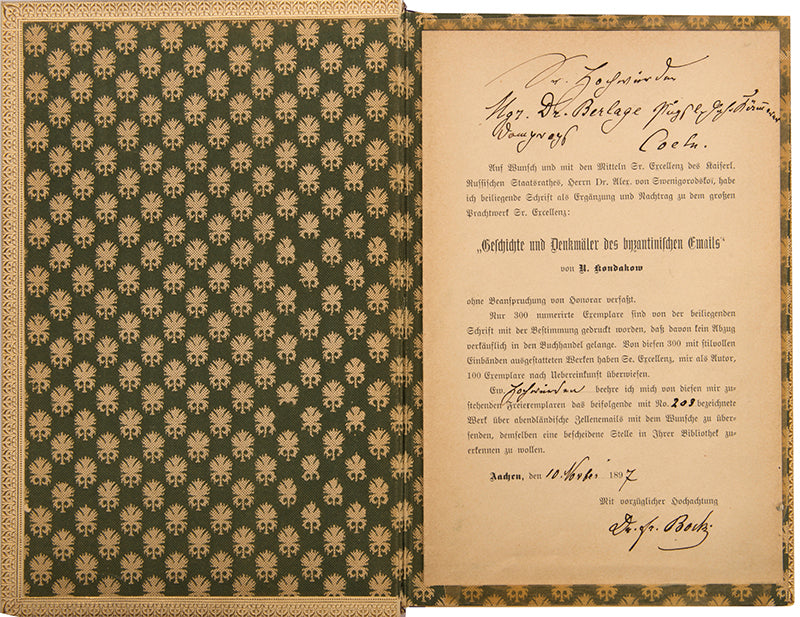 Sr. Hochwürden
Mgr. Dr. Berlage
Dompropst
Coeln.
Auf Wunsch und mit den Mitteln Sr. Excellenz des Kaiserl.
Russischen Staatsrathes, Herrn Dr. Alex. von Swenigorodskoi, habe
ich beiliegende Schrift als Ergänzung und Nachtrag zu dem großen
Prachtwerk Sr. Excellenz:
„Geschichte und Denkmäler des byzantinischen Emails“
von N. Kondakow
ohne Beanspruchung von Honorar verfaßt.
Nur 300 numerirte Exemplare sind von der beiliegenden
Schrift mit der Bestimmung gedruckt worden, daß davon kein Abzug
verkäuflich in den Buchhandel gelange. Von diesen 300 mit stilvollen
Einbänden ausgestatteten Werken haben Se. Excellenz, mir als Autor,
100 Exemplare nach Uebereinkunft überwiesen.
Ew. Hochwürden beehre ich mich von diesen mir zu-
stehenden Freiexemplaren das beifolgende mit No. 208 bezeichnete
Werk über abendländische Zellenemails mit dem Wunsche zu über-
senden, demselben eine bescheidene Stelle in Ihrer Bibliothek zu-
erkennen zu wollen.
Aachen, den 10. Novbr. 1897
Mit vorzüglicher Hochachtung
Dr. Fr. Bock